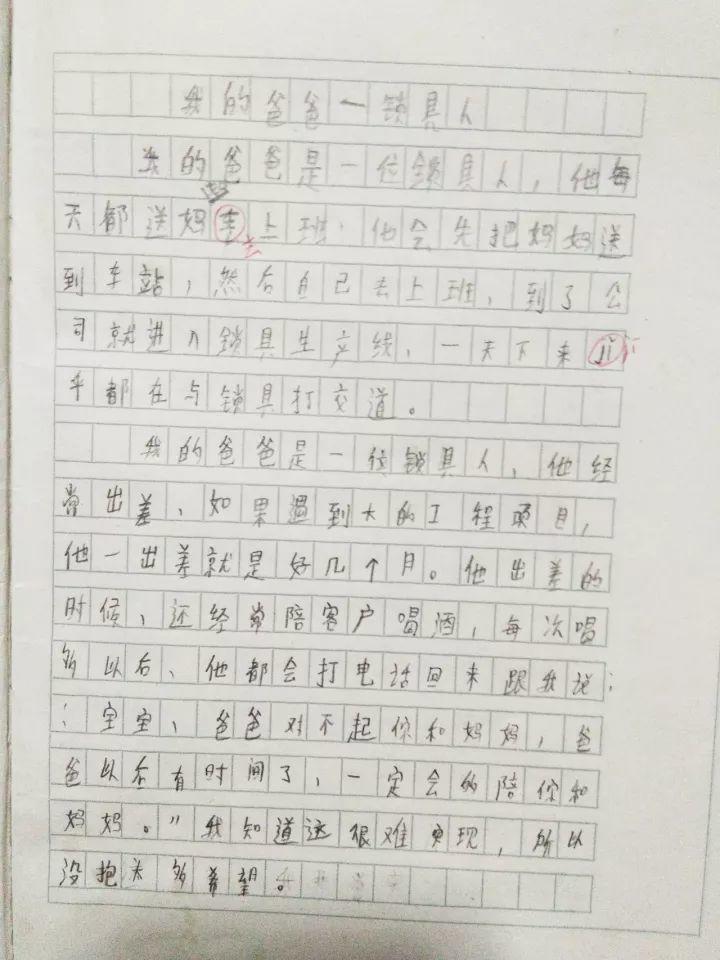 我的爸爸一锁具人
我的爸爸是一位锁具人，他每
天都送妈上班，他会先把妈妈送
到车站，然后自己去上班，到了公
司就进入锁具生产线，一天下来jī
乎都在与锁具打交道。
我的爸爸是一位锁具人，他经
常出差，如果遇到大的工程项目，
他一出差就是好几个月。他出差的
时候，还经常陪客户喝酒，每次喝
多以后、他都会打电话回来跟我说：
：宝宝、爸爸对不起你和妈妈，爸
爸以后有时间了，一定会的陪你和
妈妈。”我知道这很难实现，所以
没抱太多希望。